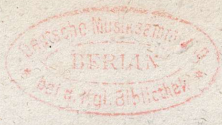 Deutsche Musiksammlung
BERLIN
bei d. Kgl. Bibliothek